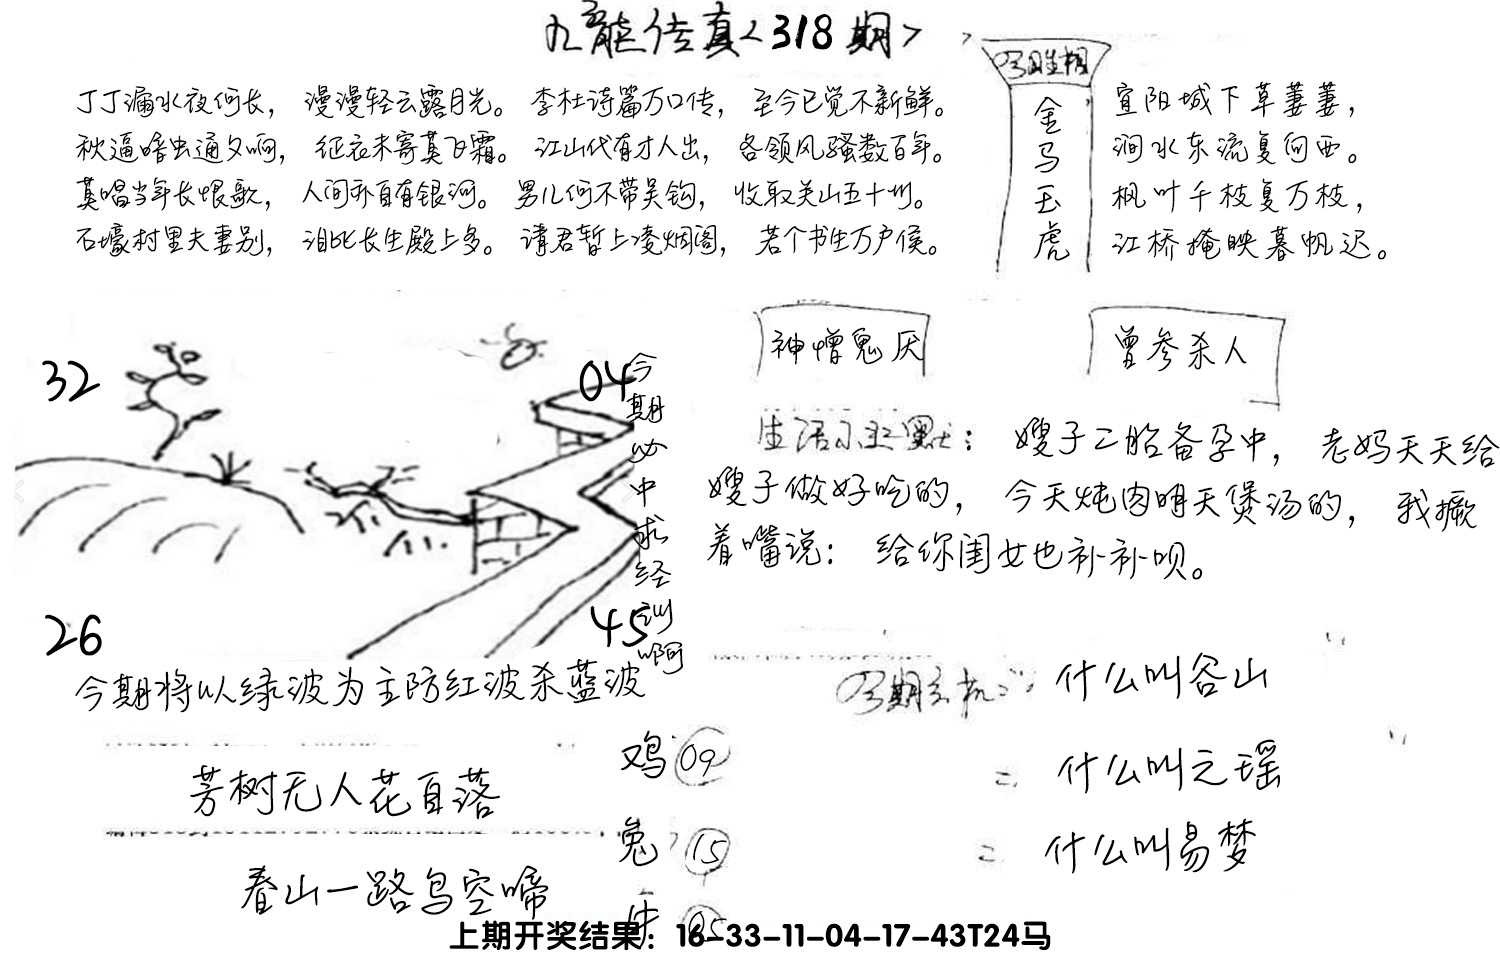 九龙传真<318期>
丁丁漏水夜何长, 漫漫轻云露月光。 李杜诗篇万口传, 至今已觉不新鲜。
秋逼暗虫通夕响, 征衣未寄莫飞霜。 江山代有才人出, 各领风骚数百年。
莫唱当年长恨歌, 人间亦自有银河。 男儿何不带吴钩, 收取关山五十州。
石壕村里夫妻别, 泪比长生殿上多。 请君暂上凌烟阁, 若个书生万户侯。
今期生相
金马玉虎
宜阳城下草萋萋,
涧水东流复向西。
枫叶千枝复万枝,
江桥掩映暮帆迟。
神憎鬼厌
曾参杀人
32
04
26
45
今期必中求经训啊
生活小幽默: 嫂子二胎备孕中, 老妈天天给
嫂子做好吃的, 今天炖肉明天煲汤的, 我撅
着嘴说: 给你闺女也补补呗。
今期将以绿波为主防红波杀蓝波
芳树无人花自落
春山一路鸟空啼
鸡 09
兔 15
牛 05
今期玄机: 什么叫谷山
= 什么叫之瑶
= 什么叫易梦
上期开奖结果: 16-33-11-04-17-43T24马